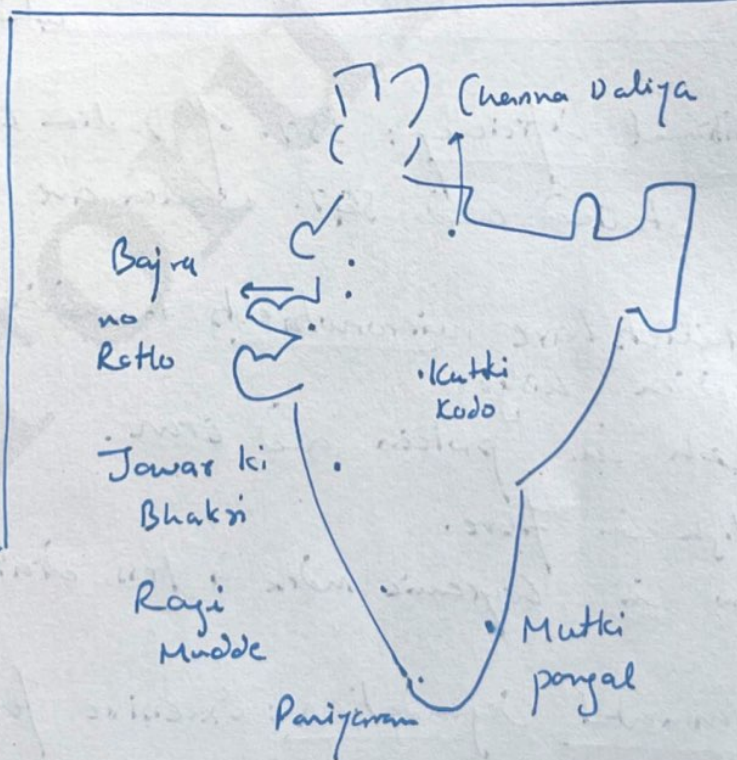 Channa Daliya
Bajra
no
Rotlo
Kutki
Kodo
Jowar ki
Bhakri
Ragi
Mudde
Mutki
pongal
Paniyaram